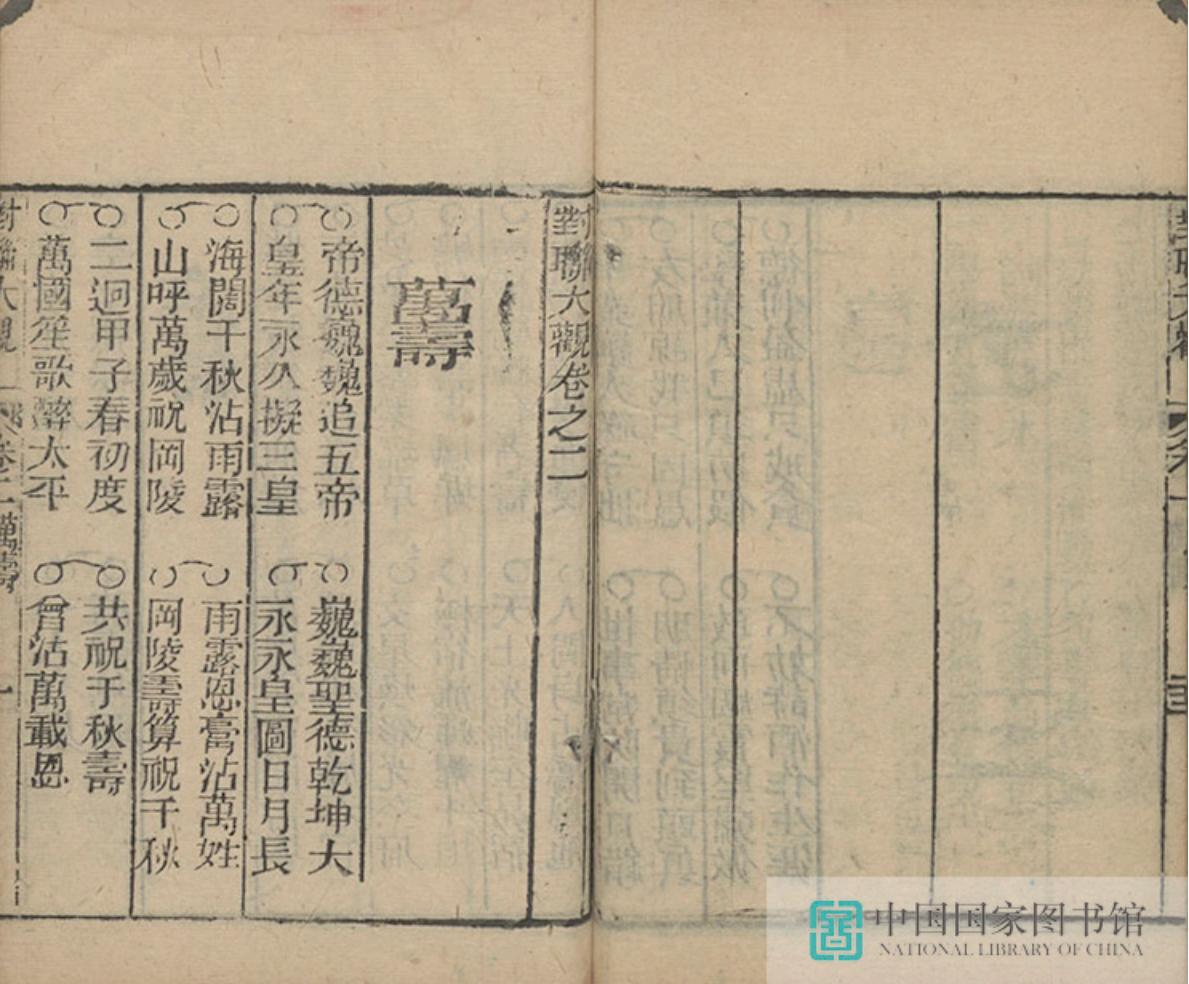 對聯大觀卷之二
萬壽
帝德巍巍追五帝
巍巍聖德乾坤大
皇年永永擬三皇
永永皇圖日月長
海闊千秋沾雨露
雨露恩膏沾萬姓
山呼萬歲祝岡陵
岡陵壽算祝千秋
二迴甲子春初度
共祝千秋壽
萬國笙歌醉太平
曾沾萬載恩
對聯大觀
卷二
萬壽
一
中国国家图书馆
NATIONAL LIBRARY OF CHINA